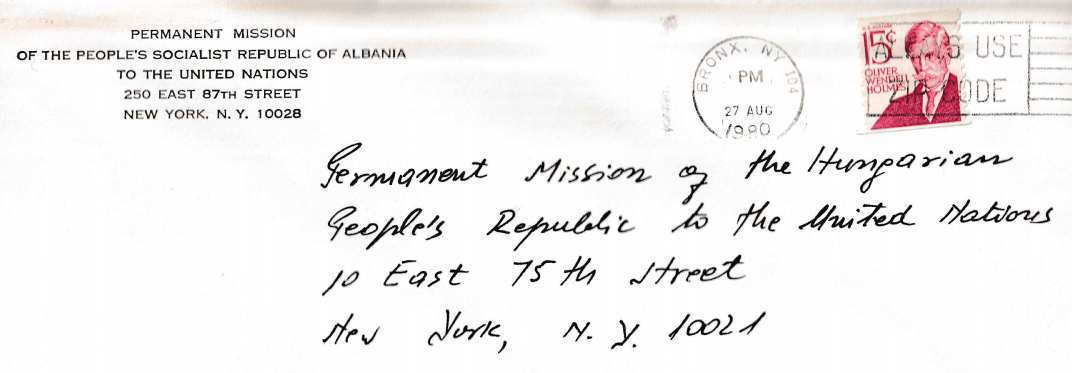 PERMANENT MISSION
OF THE PEOPLE'S SOCIALIST REPUBLIC OF ALBANIA
TO THE UNITED NATIONS
250 EAST 87TH STREET
NEW YORK, N. Y. 10028
BRONX, NY 104
PM
27 AUG
1980
15¢
OLIVER
WENDELL
HOLMES
ALWAYS USE
ZIP CODE
Permanent Mission of the Hungarian
People's Republic to the United Nations
10 East 75th Street
New York, N. Y. 10021